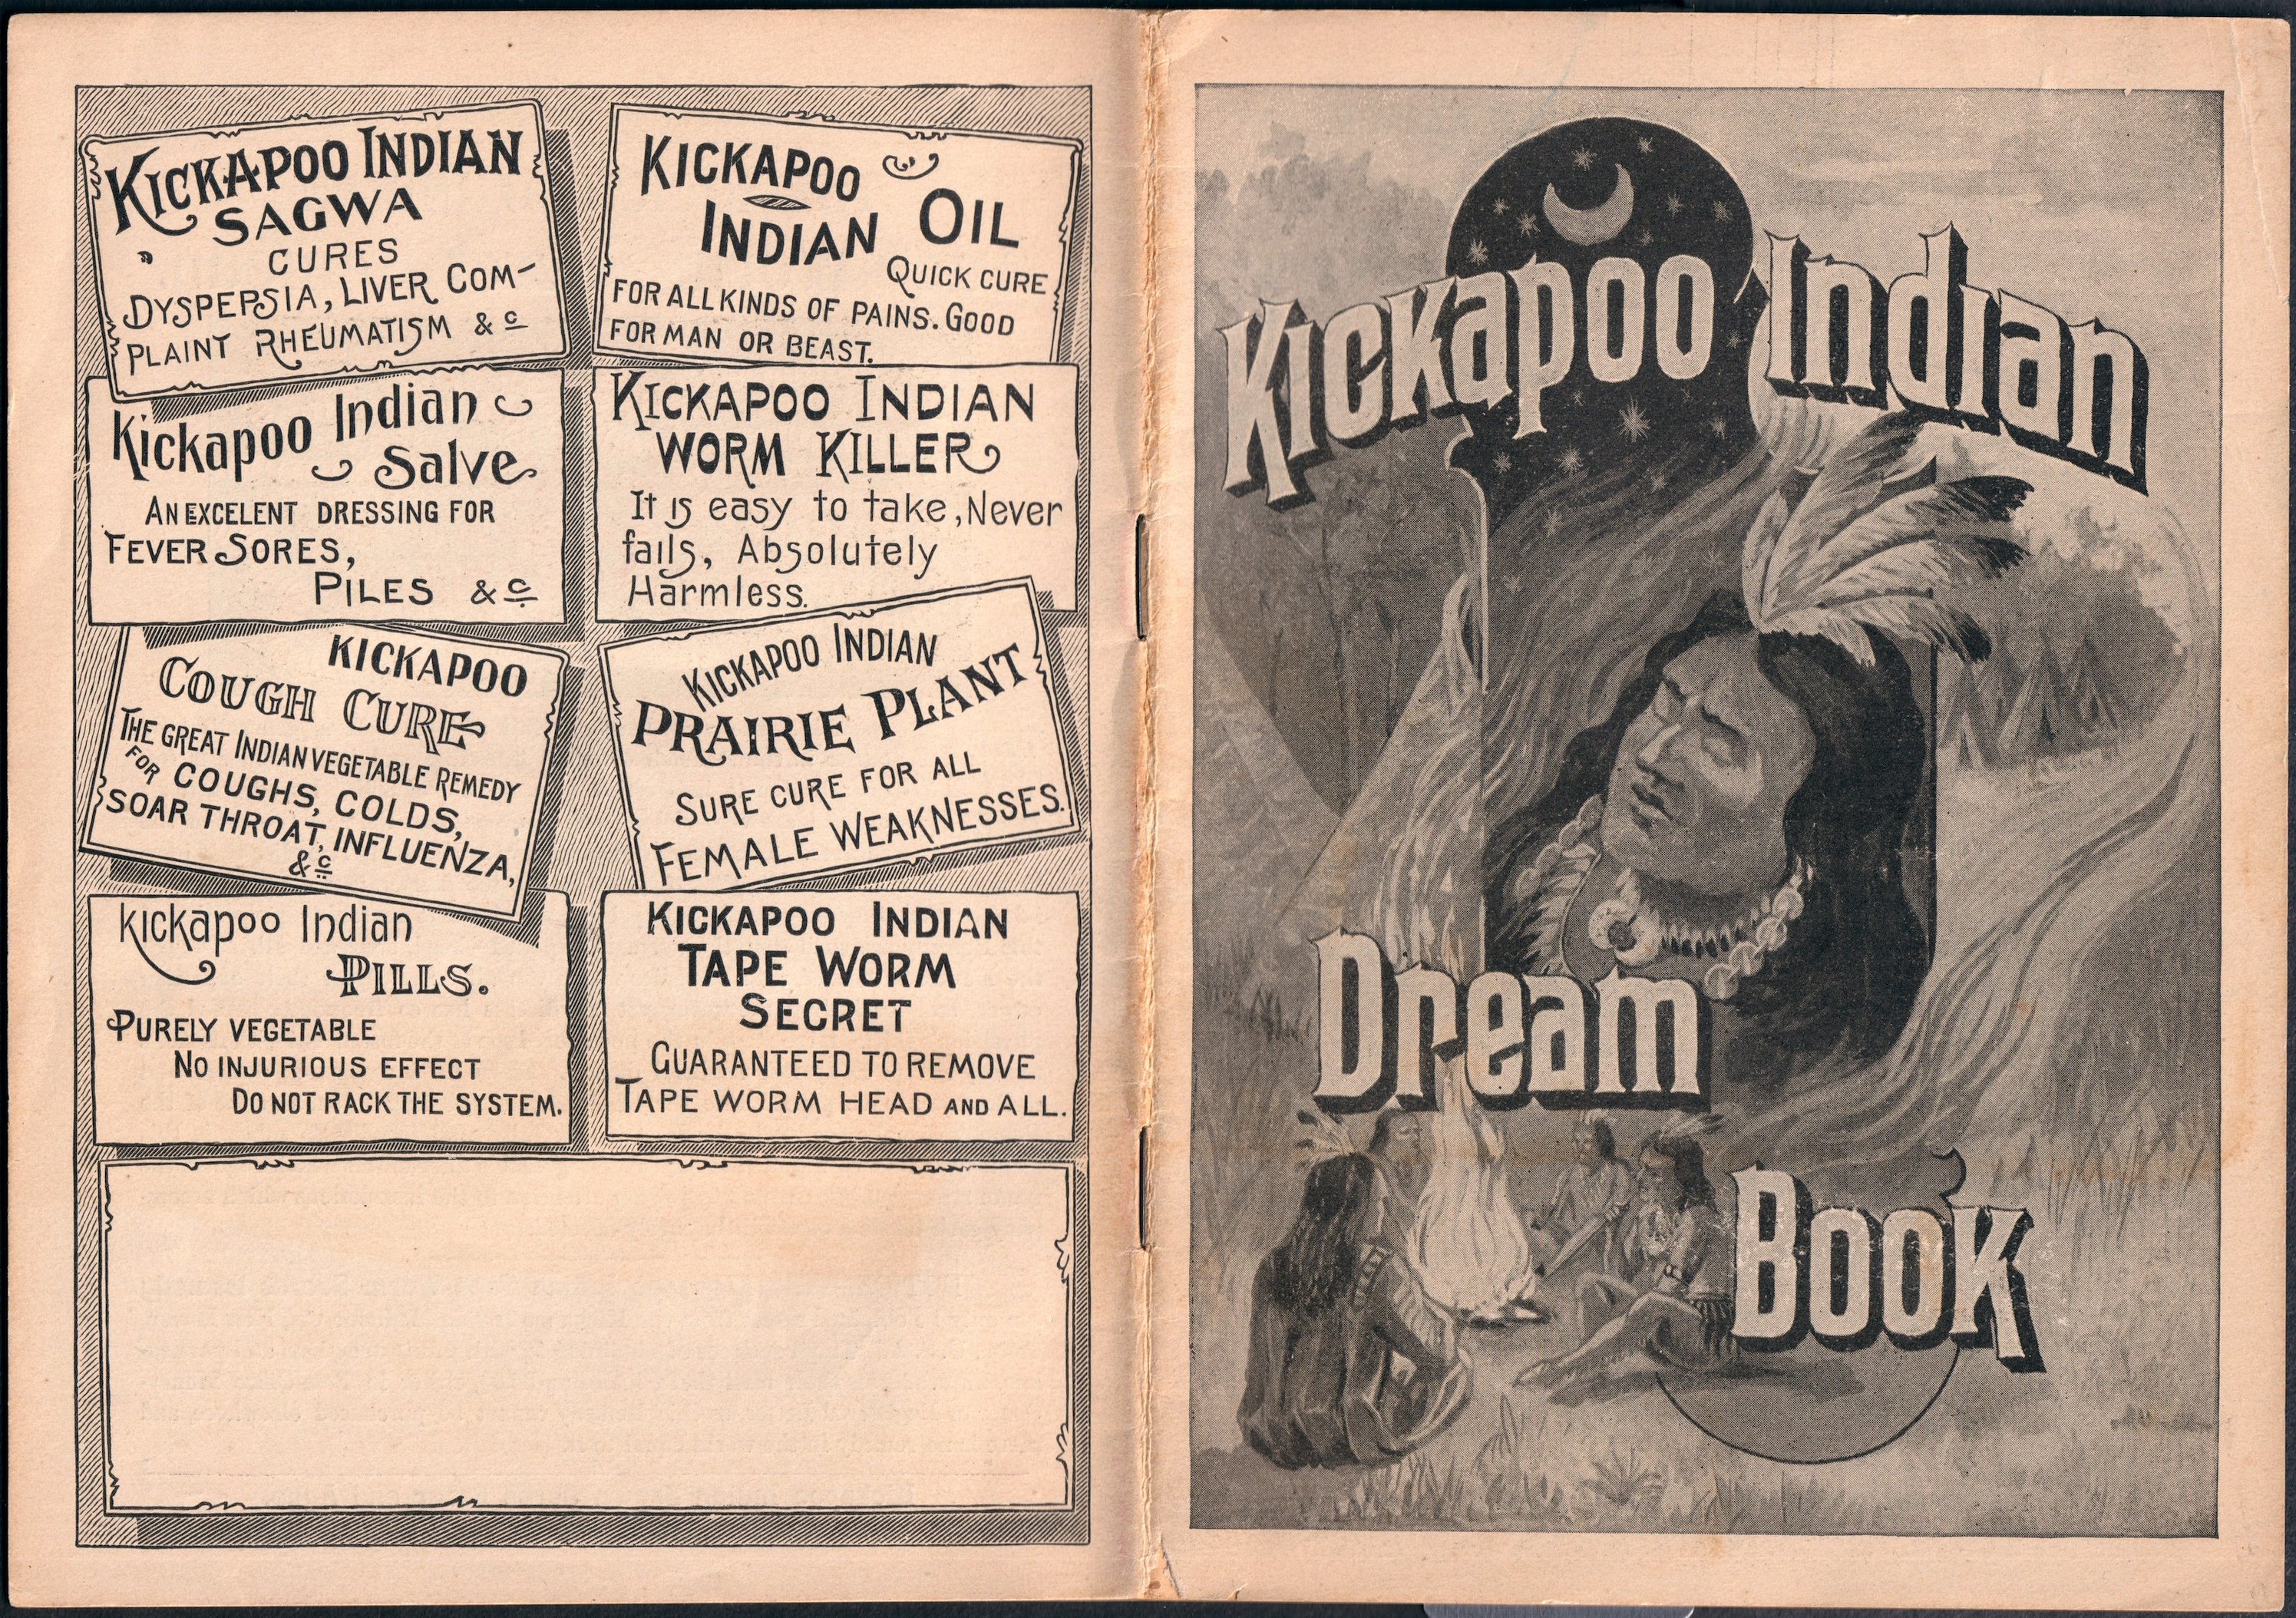 KICKAPOO INDIAN
SAGWA
CURES
DYSPEPSIA, LIVER COM-
PLAINT RHEUMATISM & c
Kickapoo Indian
Salve
AN EXCELENT DRESSING FOR
FEVER SORES,
PILES & c
KICKAPOO
COUGH CURE
THE GREAT INDIAN VEGETABLE REMEDY
FOR COUGHS, COLDS,
SOAR THROAT, INFLUENZA,
& c
kickapoo Indian
PILLS.
PURELY VEGETABLE
NO INJURIOUS EFFECT
DO NOT RACK THE SYSTEM.
KICKAPOO
INDIAN OIL
QUICK CURE
FOR ALL KINDS OF PAINS. GOOD
FOR MAN OR BEAST.
KICKAPOO INDIAN
WORM KILLER
It is easy to take, Never
fails, Absolutely
Harmless.
KICKAPOO INDIAN
PRAIRIE PLANT
SURE CURE FOR ALL
FEMALE WEAKNESSES.
KICKAPOO INDIAN
TAPE WORM
SECRET
GUARANTEED TO REMOVE
TAPE WORM HEAD AND ALL.
Kickapoo Indian
Dream
Book